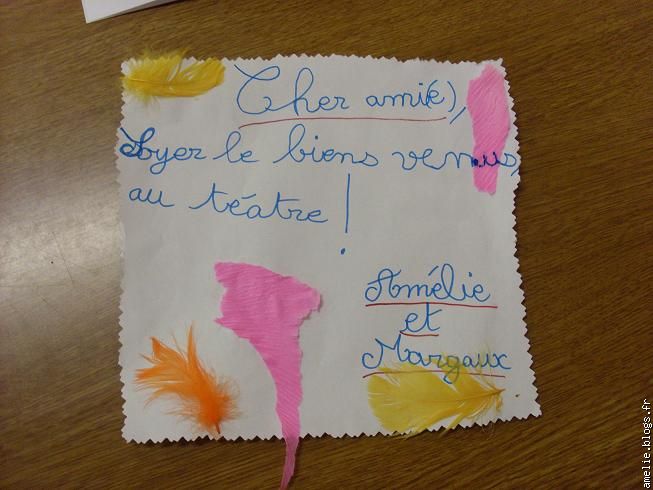 Cher ami(e),
Soyer le biens venus,
au téatre !
Amélie
et
Margaux
amelie.blogs.fr